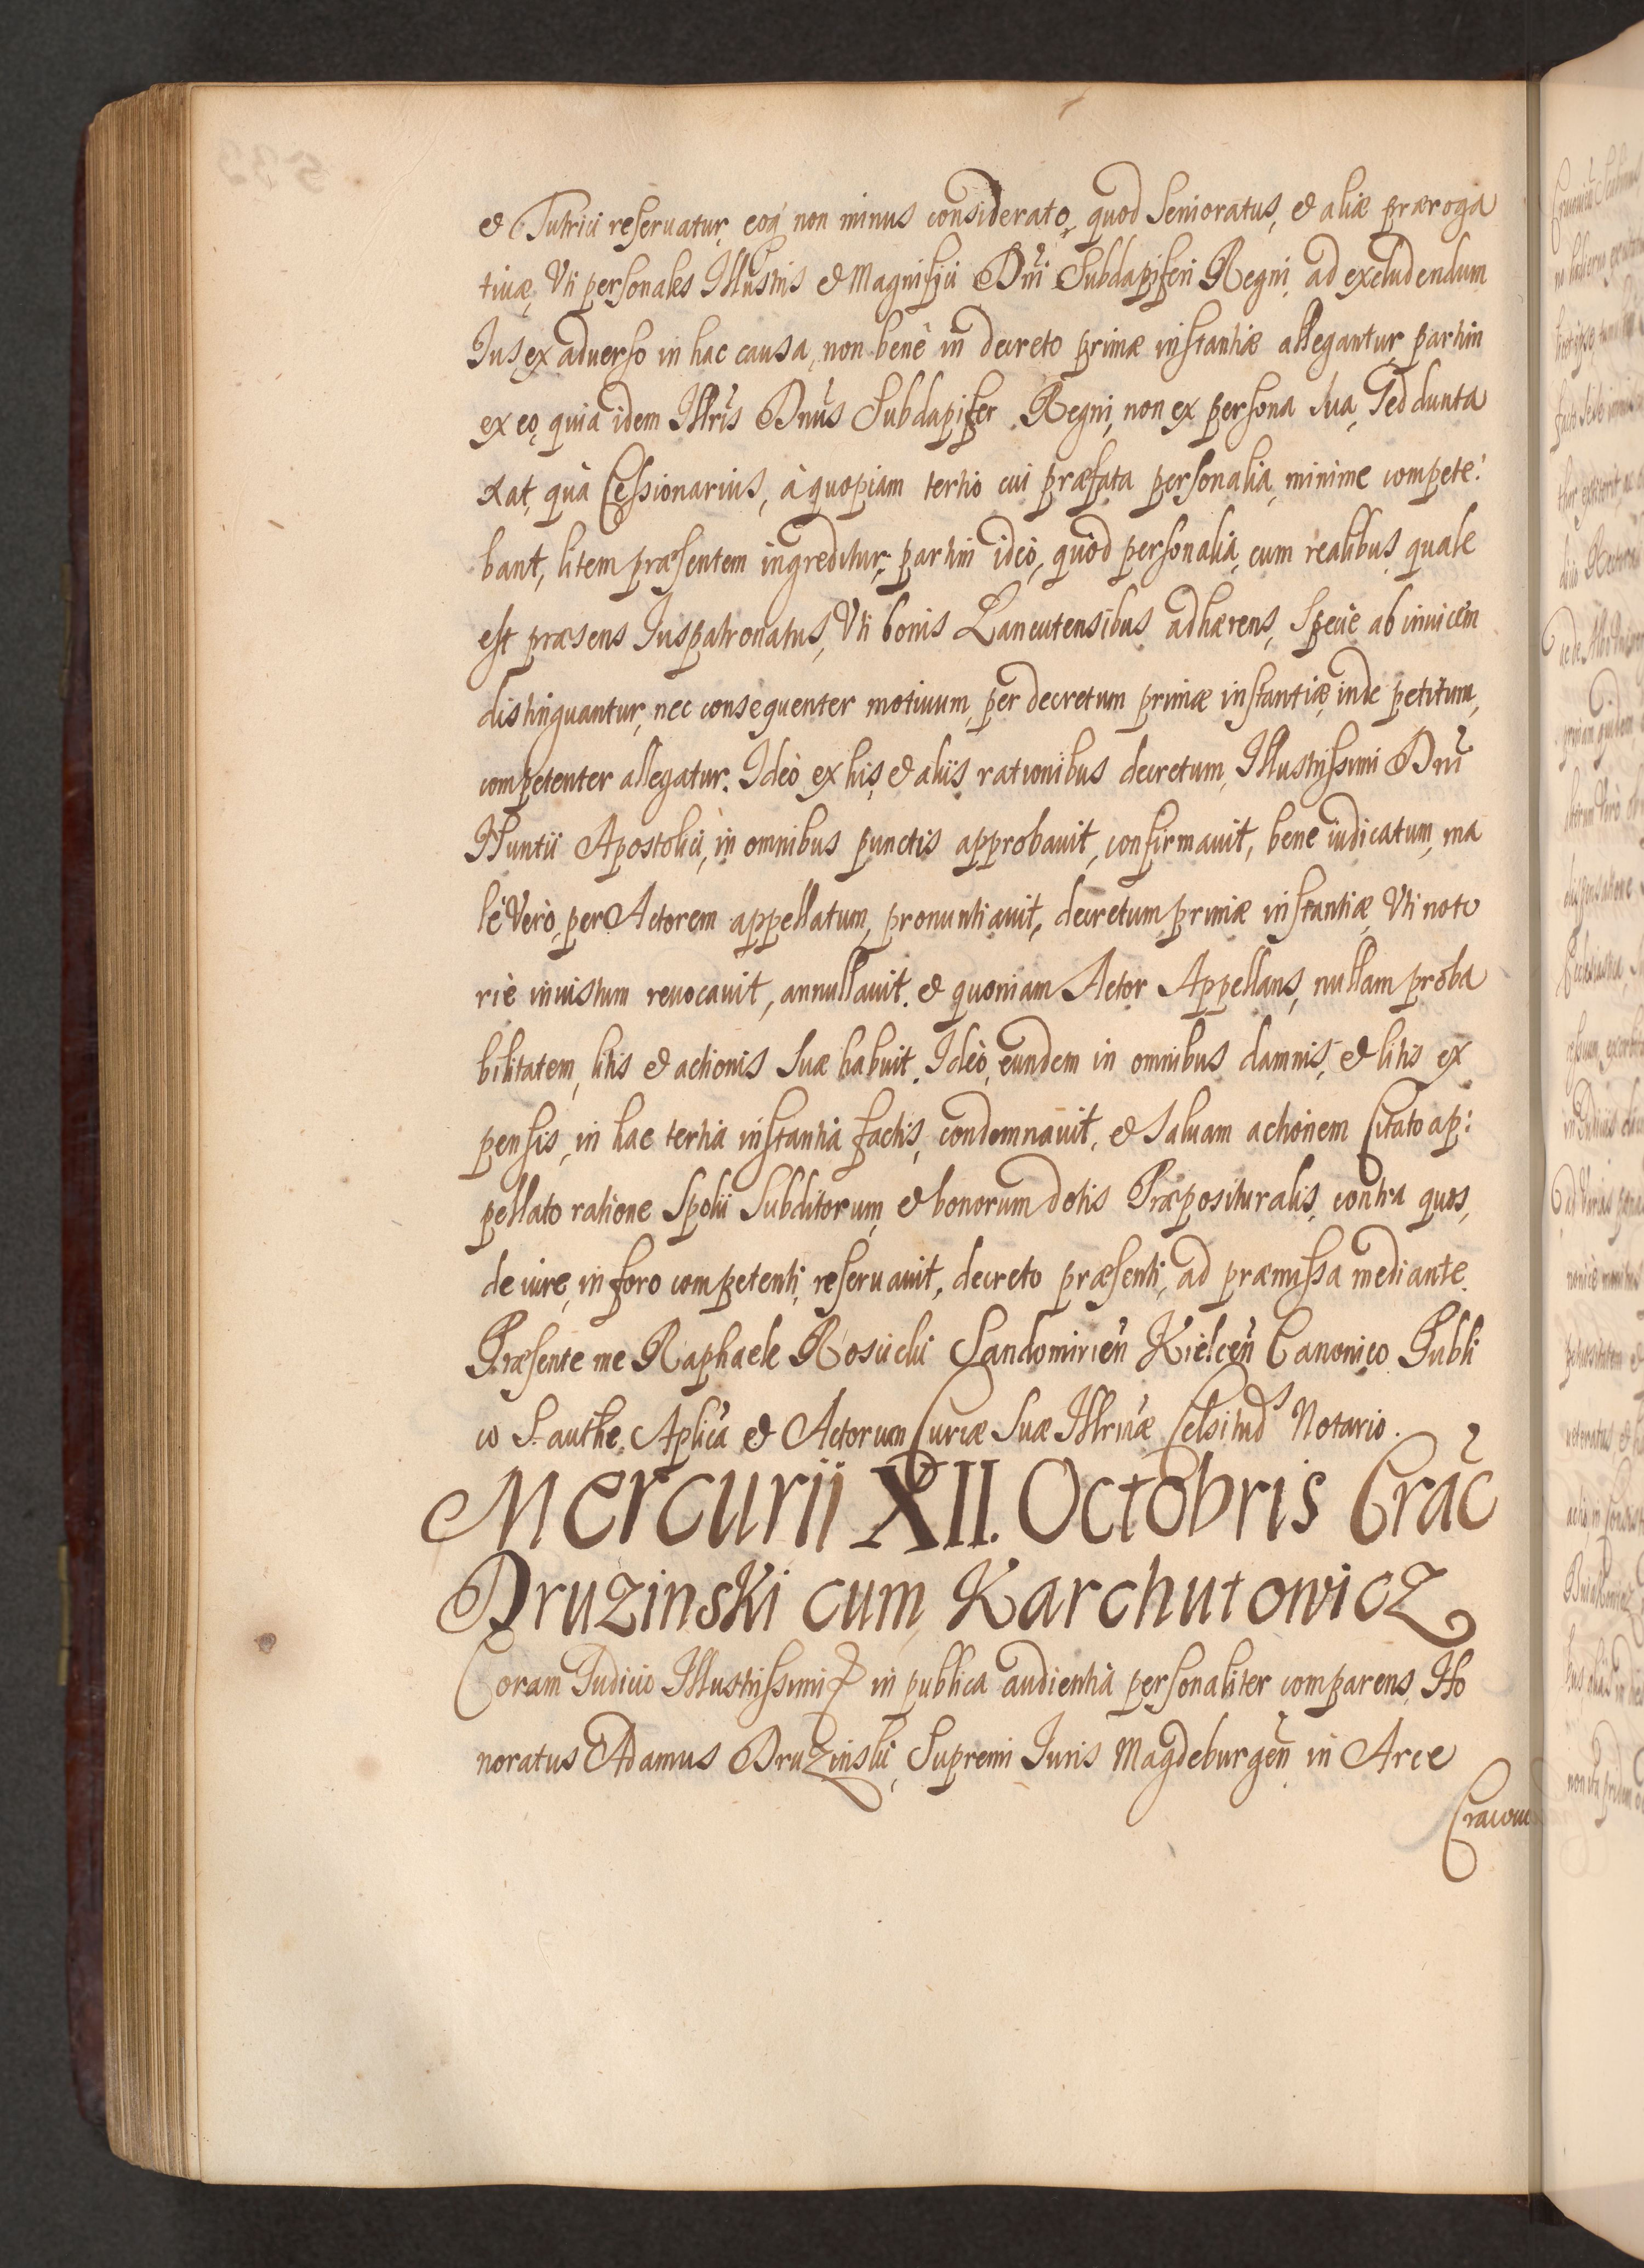 et Tutrici reseruatur, eoq́ non minus considerato, quod Senioratus, et aliæ præroga
tiuæ, Vti personales Illustris et Magnifici Dñi Subdapiferi Regni, ad excludendum
Ius, ex aduerso in hac causa, non benè in decreto primæ instantiæ allegantur, partim
ex eo, quia idem Illr̃is Dnũs Subdapifer Regni, non ex persona sua, sed dunta
xat, quà Cessionarius, à quopiam tertio cui præfata personalia, minime compete:
bant, litem præsentem ingreditur; partim ideò, quòd personalia, cum realibus, quale
est præsens Iuspatronatus, Vti bonis Lancutensibus adhærens, specie ab inuicem
distinguantur, nec consequenter motiuum, per decretum primæ instantiæ, inde petitum,
competenter allegatur. Ideò ex his, et aliis rationibus decretum, Illustrissimi Dñi
Nuntii Apostolici, in omnibus punctis approbauit, confirmauit, bene iudicatum, ma
lè Verò, per Actorem appellatum, pronuntiauit, decretum primæ instantiæ Vti noto
riè iniustum reuocauit, annullauit. et quoniam Actor Appellans, nullam proba
bilitatem, litis et actionis suæ habuit. Ideò, eundem in omnibus damnis, et litis ex
pensis, in hac tertia instantia factis, condemnauit, et saluam actionem Citato ap:
pellato ratione Spolii Subditorum, et bonorum dotis Præposituralis, contra quos,
de iure, in foro competenti, reseruauit, decreto præsenti, ad præmissa mediante.
Præsente me Raphaele Rosicki Sandomirień Kielceń Canonico Publi
co S. authe. Aplicã et Actorum Curiæ Suæ Illrmæ Celsitud Notario.
Mercurii XII. Octobris Crac̃
Druzinski cum Karchutowicz
Coram Iudicio Illustrissimi in publica audientia personaliter comparens, Ho
noratus Adamus Druzinski, Supremi Iuris Magdeburgeñ in Arce
Cracoui
533